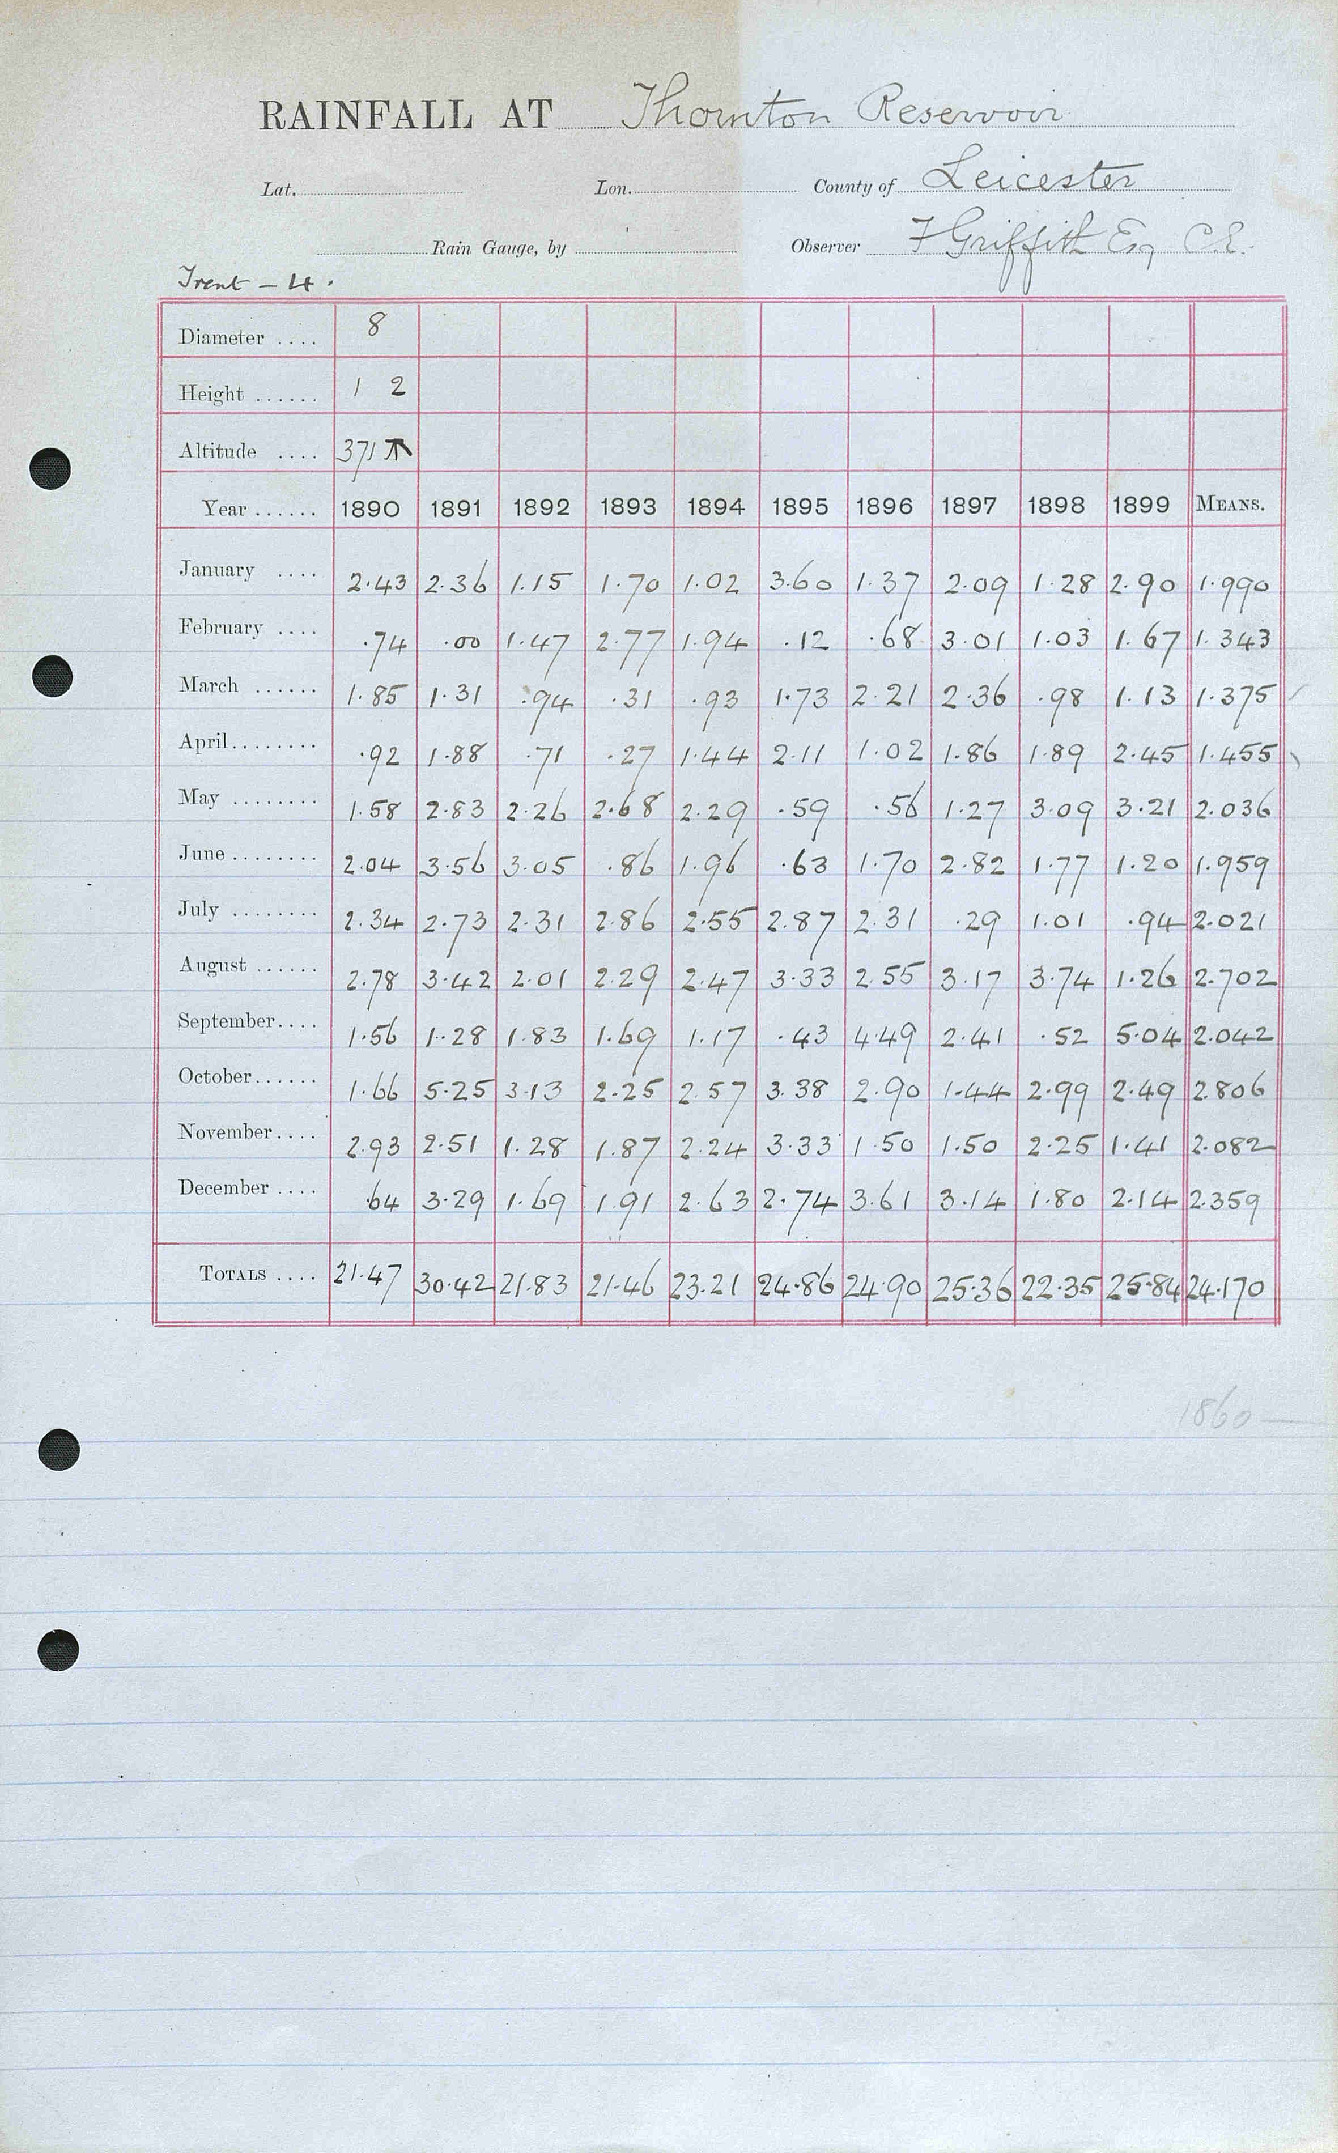 RAINFALL AT Thornton Reservoir
Lat. Lon. County of Leicester
Rain Gauge, by Observer F Griffith Esq C.E.
Trent - 4.
Diameter .... 8
Height ...... 1 2
Altitude .... 371
Year ...... 1890 1891 1892 1893 1894 1895 1896 1897 1898 1899 MEANS.
January .... 2.43 2.36 1.15 1.70 1.02 3.60 1.37 2.09 1.28 2.90 1.990
February .... .74 .00 1.47 2.77 1.94 .12 .68 3.01 1.03 1.67 1.343
March ...... 1.85 1.31 .94 .31 .93 1.73 2.21 2.36 .98 1.13 1.375
April........ .92 1.88 .71 .27 1.44 2.11 1.02 1.86 1.89 2.45 1.455
May ........ 1.58 2.83 2.26 2.68 2.29 .59 .56 1.27 3.09 3.21 2.036
June ........ 2.04 3.56 3.05 .86 1.96 .63 1.70 2.82 1.77 1.20 1.959
July ........ 2.34 2.73 2.31 2.86 2.55 2.87 2.31 .29 1.01 .94 2.021
August ...... 2.78 3.42 2.01 2.29 2.47 3.33 2.55 3.17 3.74 1.26 2.702
September.... 1.56 1.28 1.83 1.69 1.17 .43 4.49 2.41 .52 5.04 2.042
October...... 1.66 5.25 3.13 2.25 2.57 3.38 2.90 1.44 2.99 2.49 2.806
November.... 2.93 2.51 1.28 1.87 2.24 3.33 1.50 1.50 2.25 1.41 2.082
December .... .64 3.29 1.69 1.91 2.63 2.74 3.61 3.14 1.80 2.14 2.359
TOTALS .... 21.47 30.42 21.83 21.46 23.21 24.86 24.90 25.36 22.35 25.84 24.170
1860 —